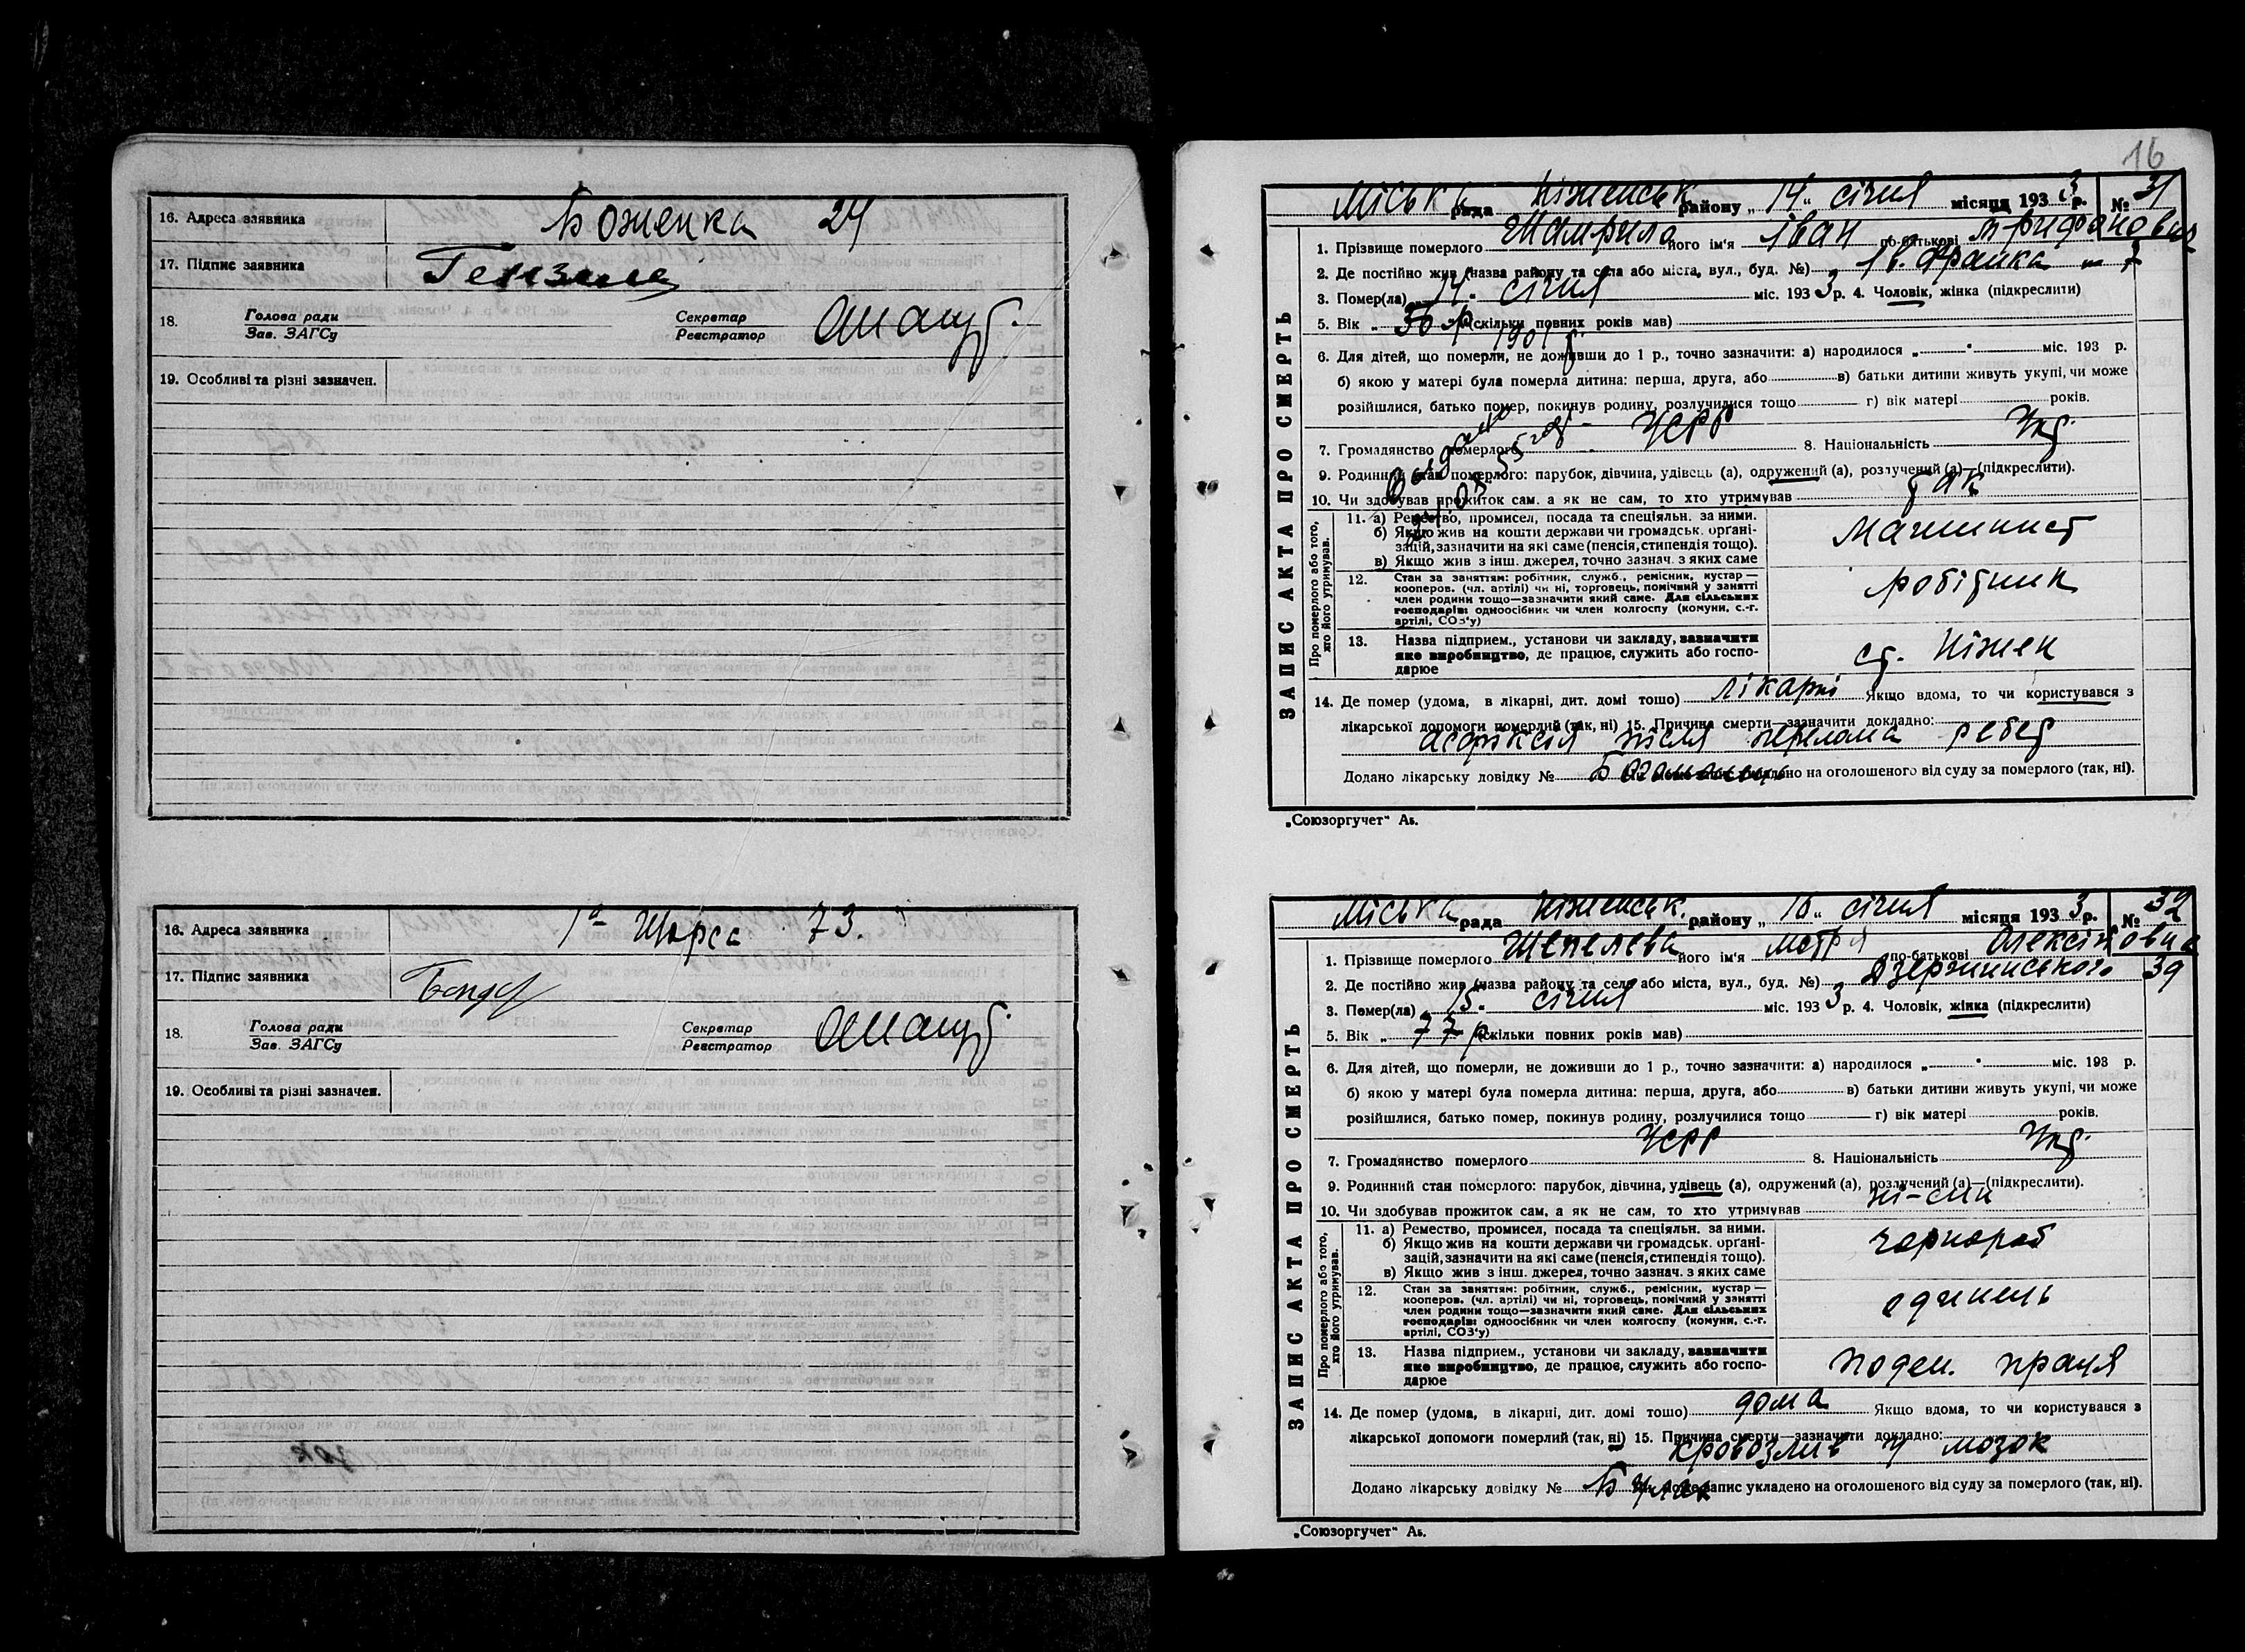 16. Адреса заявника Боженка 24
17. Підпис заявника
18. Голова ради Секретар
Зав. ЗАГСу Реєстратор
19. Особливі та різні зазначен.
16. Адреса заявника Щорса 73.
17. Підпис заявника
18. Голова ради Секретар
Зав. ЗАГСу Реєстратор
19. Особливі та різні зазначен.
16
Міська рада Ніженськ. району „14“ січня місяця 1933 р. № 31
ЗАПИС АКТА ПРО СМЕРТЬ
1. Прізвище померлого його ім'я Іван по-батькові Трифонович
2. Де постійно жив (назва району та села або міста, вул., буд. №) Ів. Франка 7
3. Помер(ла) „14“ січня міс. 1933 р. 4. Чоловік, жінка (підкреслити)
5. Вік „ р. (скільки повних років мав)
1901 р
6. Для дітей, що померли, не доживши до 1 р., точно зазначити: а) народилося „ “ міс. 193 р.
б) якою у матері була померла дитина: перша, друга, або в) батьки дитини живуть укупі, чи може
розійшлися, батько помер, покинув родину, розлучилися тощо г) вік матері років.
7. Громадянство померлого УСРР 8. Національність Укр.
9. Родинний стан померлого: парубок, дівчина, удівець (а), одружений (а), розлучений (а)—(підкреслити).
10. Чи здобував прожиток сам, а як не сам, то хто утримував так
Про померлого або того, хто його утримував.
11. а) Ремество, промисел, посада та спеціяльн. за ними.
б) Якщо жив на кошти держави чи громадськ. організацій, зазначити на які саме (пенсія, стипендія тощо).
в) Якщо жив з інш. джерел, точно зазнач. з яких саме
машинист
12. Стан за заняттям: робітник, служб., ремісник, кустар—
кооперов. (чл. артілі) чи ні, торговець, помічний у занятті
член родини тощо—зазначити який саме. Для сільських
господарів: одноосібник чи член колгоспу (комуни, с.-г.
артілі, СОЗ'у)
робітник
13. Назва підприєм., установи чи закладу, зазначити
яке виробництво, де працює, служить або госпо-
дарює
ст. Ніжен
14. Де помер (удома, в лікарні, дит. домі тошо) лікарні Якщо вдома, то чи користувався з
лікарської допомоги померлий (так, ні) 15. Причина смерти—зазначити докладно:
асфіксія після перелома ребер
Додано лікарську довідку № на оголошеного від суду за померлого (так, ні).
„Союзоргучет“ Аь.
Міська рада Ніженськ. району січня місяця 1933 р. № 32
ЗАПИС АКТА ПРО СМЕРТЬ
1. Прізвище померлого Шепелева його ім'я по-батькові Олексіївна
2. Де постійно жив (назва району та села або міста, вул., буд. №) Дзержинського 39
3. Помер(ла) „15“ січня міс. 1933 р. 4. Чоловік, жінка (підкреслити)
5. Вік „77 р (скільки повних років мав)
6. Для дітей, що померли, не доживши до 1 р., точно зазначити: а) народилося „ “ міс. 193 р.
б) якою у матері була померла дитина: перша, друга, або в) батьки дитини живуть укупі, чи може
розійшлися, батько помер, покинув родину, розлучилися тощо г) вік матері років.
7. Громадянство померлого УСРР 8. Національність Укр.
9. Родинний стан померлого: парубок, дівчина, удівець (а), одружений (а), розлучений (а)—(підкреслити).
10. Чи здобував прожиток сам, а як не сам, то хто утримував ні-син
Про померлого або того, хто його утримував.
11. а) Ремество, промисел, посада та спеціяльн. за ними.
б) Якщо жив на кошти держави чи громадськ. організацій, зазначити на які саме (пенсія, стипендія тощо).
в) Якщо жив з інш. джерел, точно зазнач. з яких саме
чорнороб
12. Стан за заняттям: робітник, служб., ремісник, кустар—
кооперов. (чл. артілі) чи ні, торговець, помічний у занятті
член родини тощо—зазначити який саме. Для сільських
господарів: одноосібник чи член колгоспу (комуни, с.-г.
артілі, СОЗ'у)
13. Назва підприєм., установи чи закладу, зазначити
яке виробництво, де працює, служить або госпо-
дарює
поден. праця
14. Де помер (удома, в лікарні, дит. домі тошо) дома Якщо вдома, то чи користувався з
лікарської допомоги померлий (так, ні) 15. Причина смерти—зазначити докладно:
кровозлив у мозок
Додано лікарську довідку № запис укладено на оголошеного від суду за померлого (так, ні).
„Союзоргучет“ Аь.